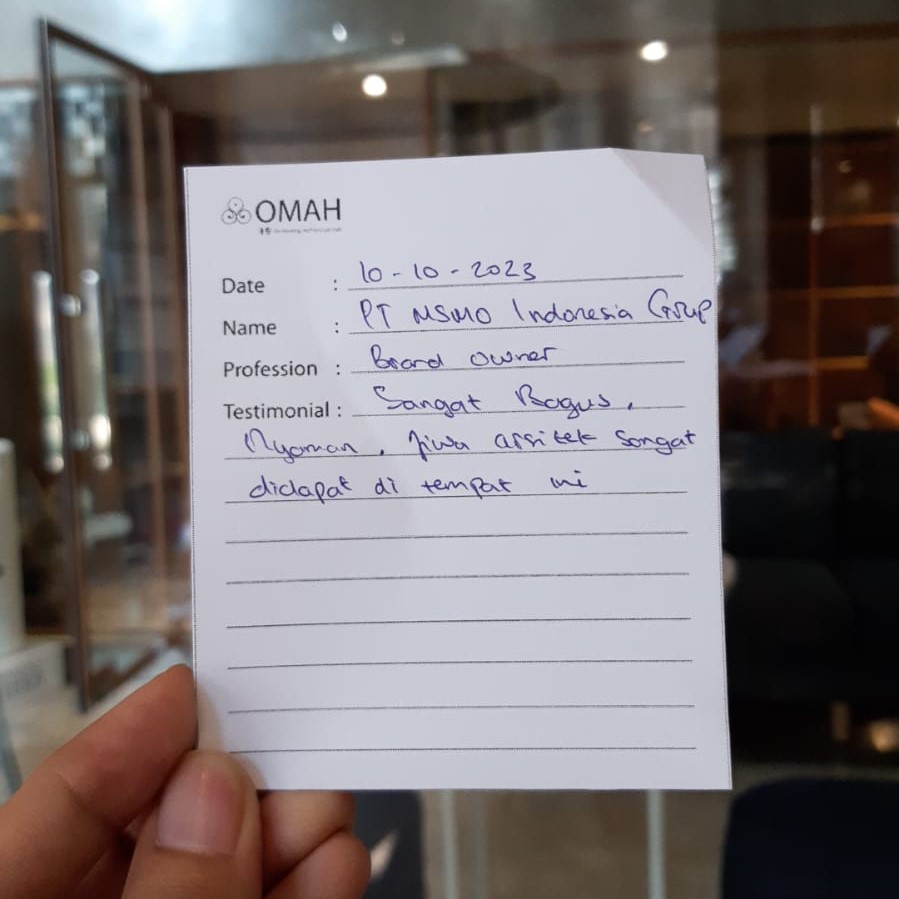 OMAH
Date : 10-10-2023
Name : PT MSMO Indonesia Group
Profession : Brand owner
Testimonial : Sangat Bagus,
Nyaman, Jiwa arsitek Sangat
didapat di tempat ini